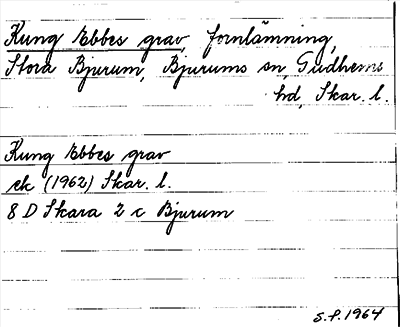 Kung Ebbes grav, fornlämning,
Stora Bjurum, Bjurums sn, Gudhems
hd, Skar. l.
Kung Ebbes grav
ek (1962) Skar. l.
8 D Skara 2 c Bjurum
S.P. 1964